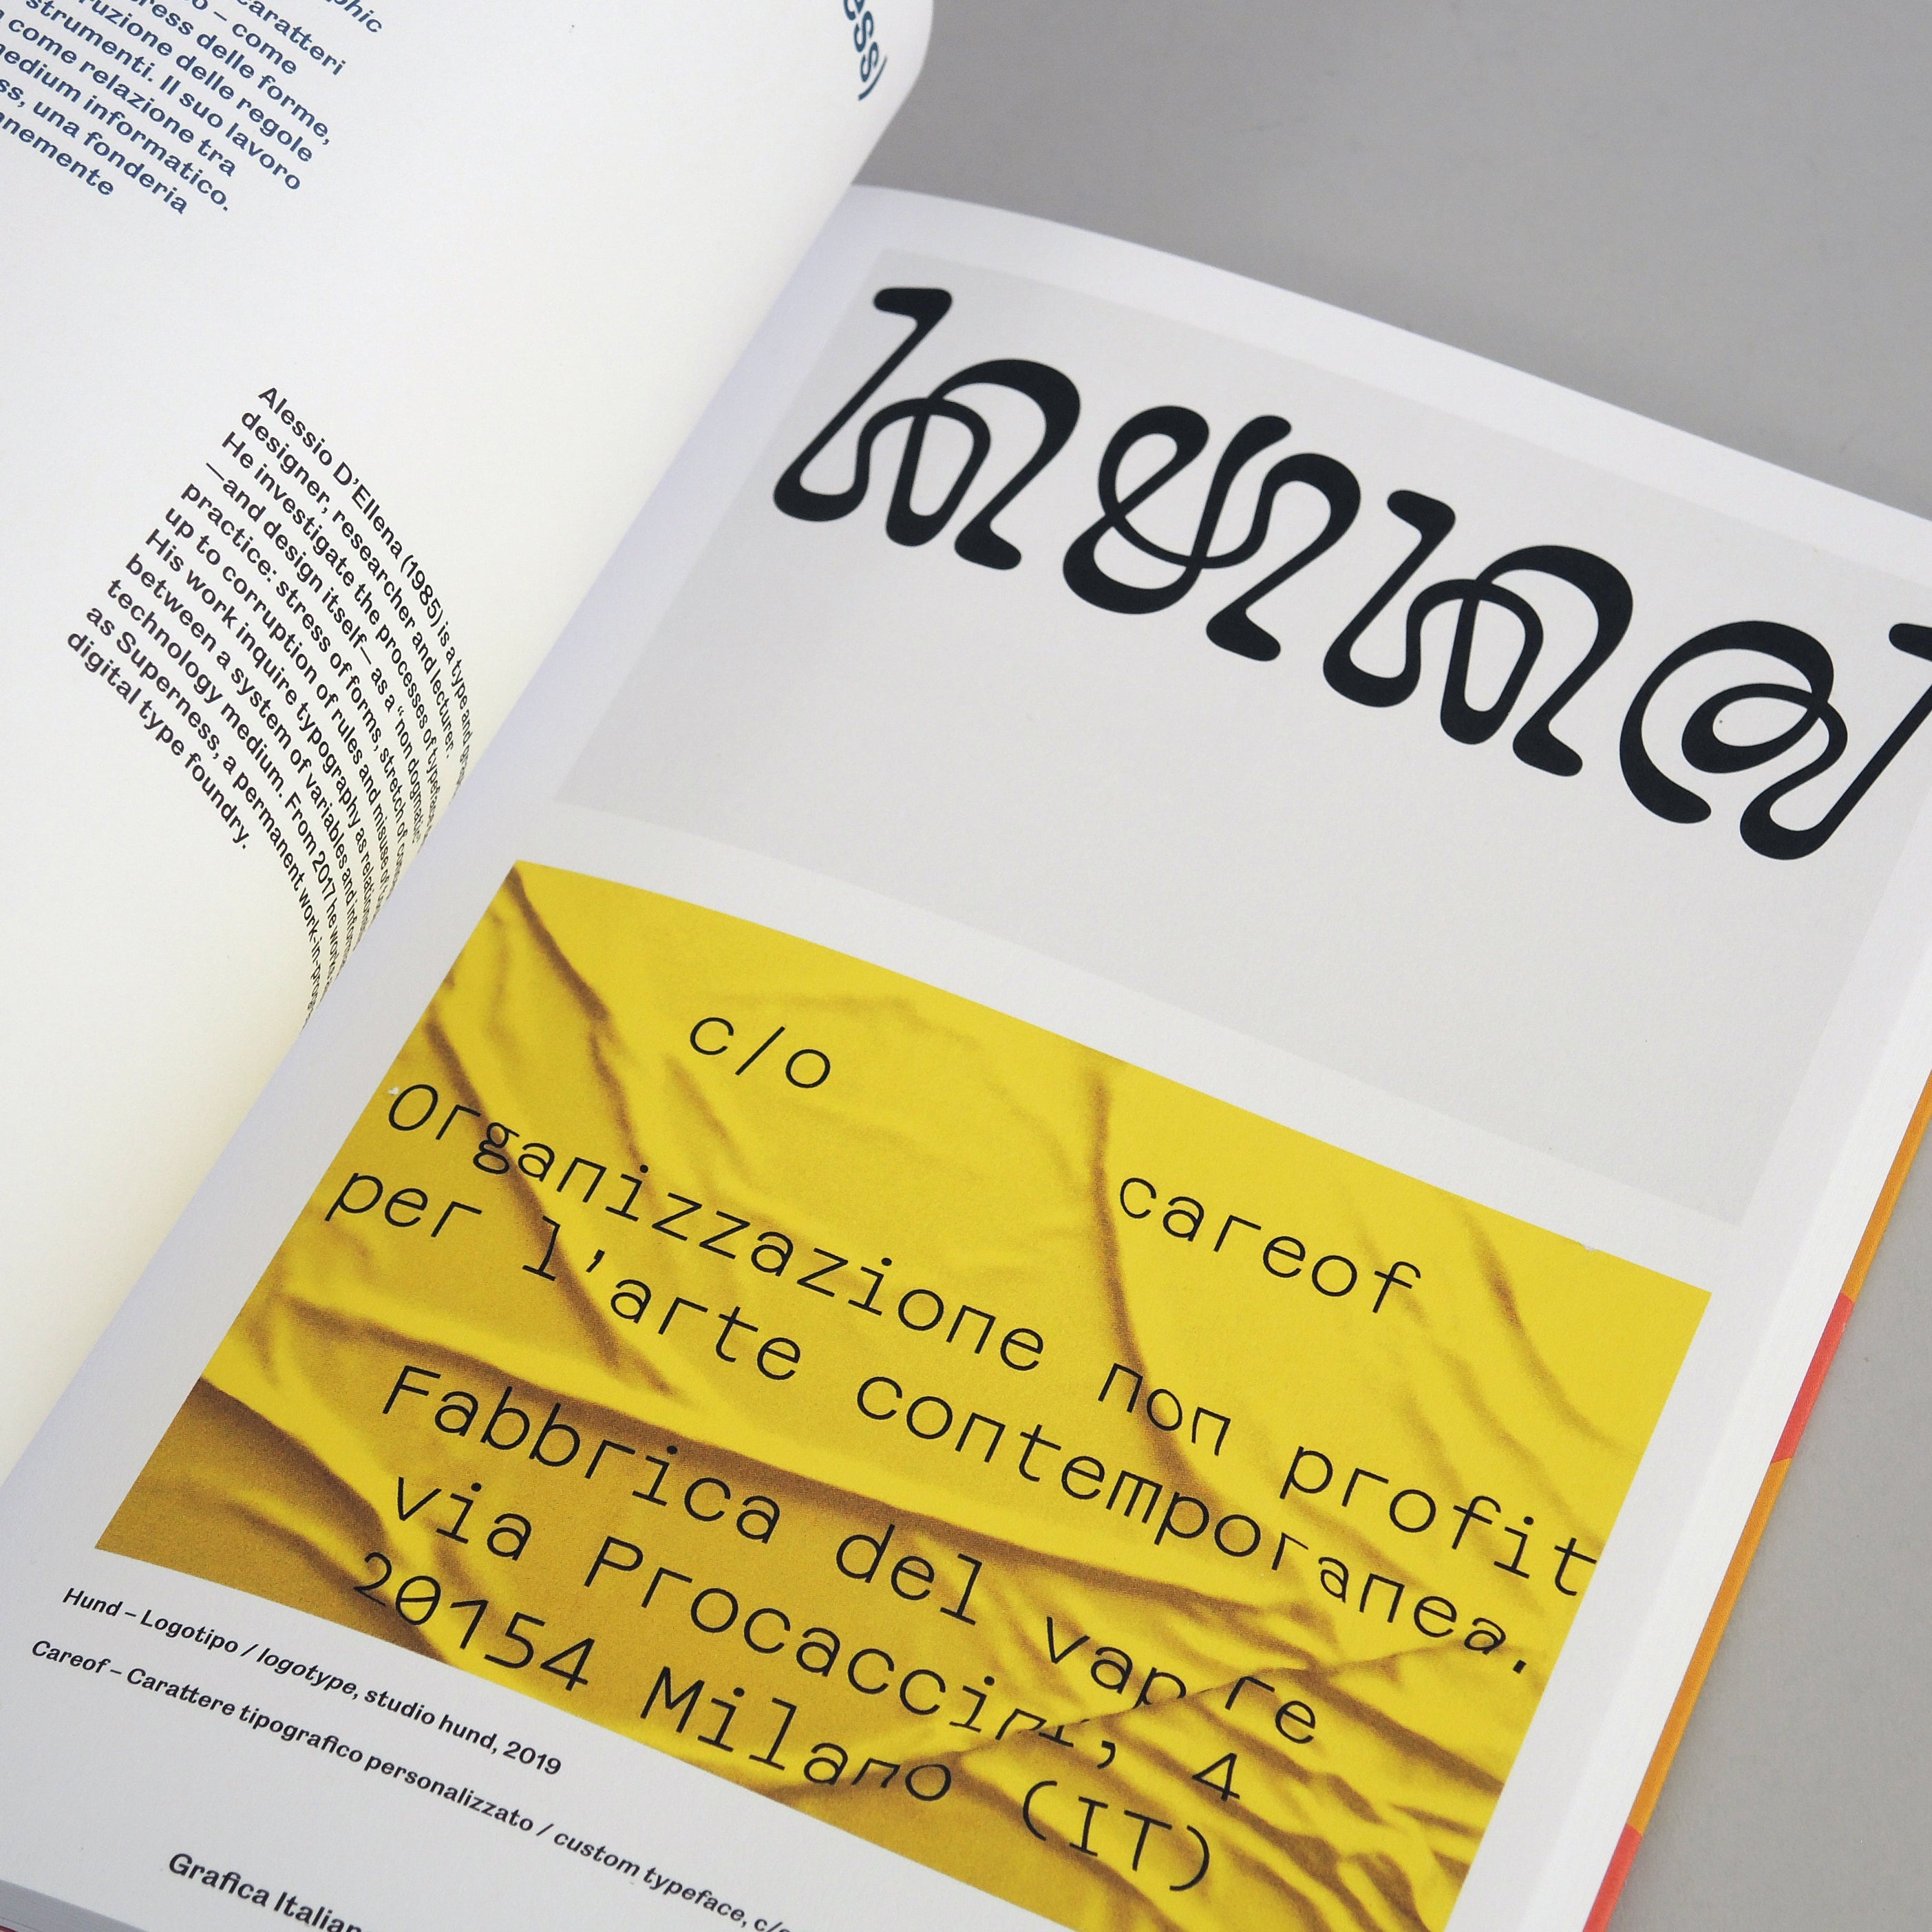 caratteri
– come
press delle forme,
delle regole
strumenti. Il suo lavoro
come relazione tra
medium informatico.
una fonderia
Alessio D'Ellena (1985) is a type and
designer, researcher and lecturer.
He investigate the processes of
—and design itself— as a “non dogmatic
practice: stress of forms, stretch of
up to corruption of rules and misuse of
His work inquire typography as
between a system of variables and
technology medium. From 2017 he works
as Superness, a permanent work-in-
digital type foundry.
hund
c/o careof
Organizzazione non profit
per l'arte contemporanea.
Fabbrica del vapore
via Procaccini, 4
20154 Milano (IT)
Hund – Logotipo / logotype, studio hund, 2019
Careof – Carattere tipografico personalizzato / custom typeface,
Grafica